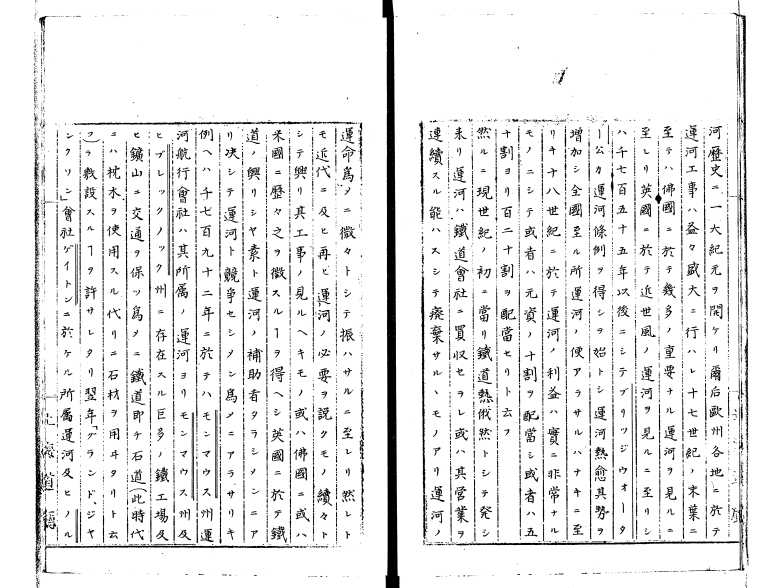 河歴史ニ一大紀元ヲ開ケリ爾后歐州各地ニ於テ
運河工事ハ益々盛大ニ行ハレ十七世紀ノ末葉ニ
至テハ佛國ニ於テ幾多ノ重要ナル運河ヲ見ルニ
至レリ英國ニ於テ近世風ノ運河ヲ見ルニ至リシ
ハ千七百五十五年以後ニシテブリッジウォータ
ー公カ運河條例ヲ得シヲ始トシ運河熱愈其勢ヲ
増加シ全國至ル所運河ノ便アラサルハナキニ至
リキ十八世紀ニ於テ運河ノ利益ハ實ニ非常ナル
モノニシテ或者ハ元資ノ十割ヲ配當シ或者ハ五
十割ヨリ百二十割ヲ配當セリト云フ
然ルニ現世紀ノ初ニ當リ鐵道熱俄然トシテ発シ
来リ運河ハ鐵道會社ニ買収セラレ或ハ其営業ヲ
連續スル能ハスシテ廢棄サルヽモノアリ運河ノ
運命爲メニ微々トシテ振ハサルニ至レリ然レト
モ近代ニ及ヒ再ヒ運河ノ必要ヲ説クモノ續々ト
シテ興リ其工事ノ見ルヘキモノ或ハ佛國ニ或ハ
米國ニ歴々之ヲ徴スルヿヲ得ヘシ英國ニ於テ鐵
道ノ興リシヤ素ト運河ノ補助者タラシメンニア
リ决シテ運河ト競争セシメン爲メニアラサリキ
例ヘハ千七百九十二年ニ於テハモンマウス州運
河航行會社ハ其所属ノ運河ヨリモンマウス州及
ヒブレックノック州ニ存在スル巨多ノ鐵工場及
ヒ鑛山ニ交通ヲ保ツ爲メニ鐵道即チ石道(此時代
ニハ枕木ヲ使用スル代リニ石材ヲ用ヰタリト云
フ)ヲ敷設スルヿヲ許サレタリ翌年「グランド、ジャ
ンクソン」會社ゲイトンニ於ケル所属運河及ヒノル